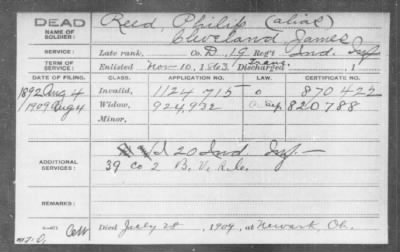 DEAD
NAME OF SOLDIER:
Reed, Philip (alias)
Cleveland James
SERVICE:
Late rank, Co. D, 19 Reg't Ind. Inf
TERM OF SERVICE:
Enlisted Nov 10, 1863, Trans. Discharged , 1
DATE OF FILING. CLASS. APPLICATION NO. LAW. CERTIFICATE NO.
1892 Aug 4 Invalid, 1124715 870422
1909 Aug 4 Widow, 924,932 820788
Minor,
ADDITIONAL SERVICES:
20 Ind Inf
39 Co 2 B. V. R. C.
REMARKS:
Died July 28, 1909, at Newark, Oh.